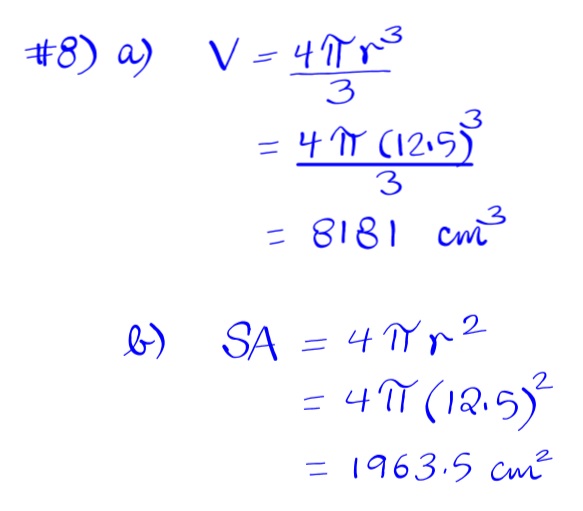 #8) a) V = 4πr³/3
= 4π(12.5)³/3
= 8181 cm³
b) SA = 4πr²
= 4π(12.5)²
= 1963.5 cm²